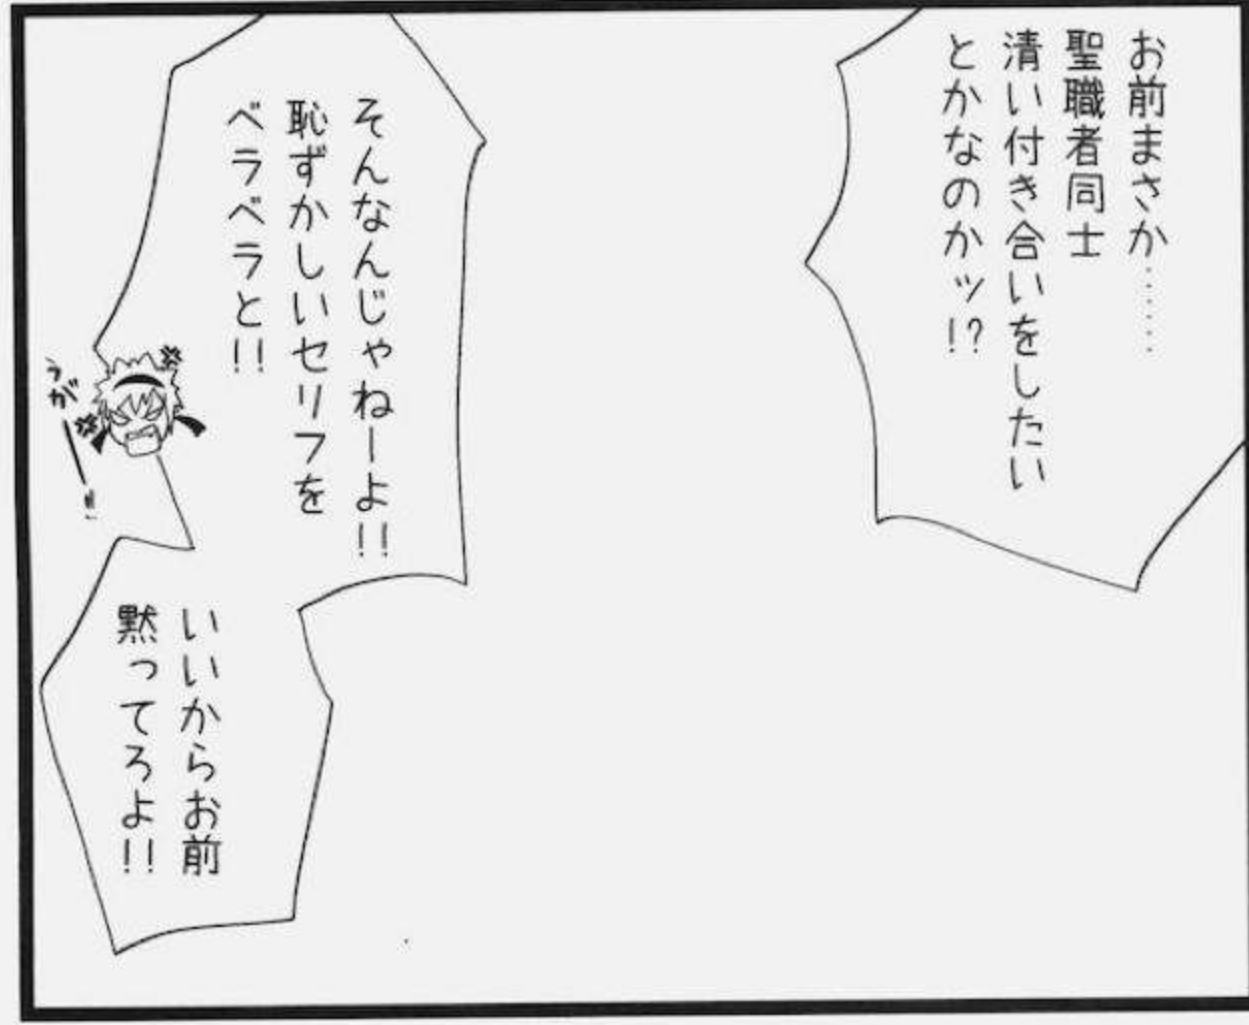 お前まさか……
聖職者同士
清い付き合いをしたい
とかなのかッ!?
そんなんじゃねーよ!!
恥ずかしいセリフを
ベラベラと!!
うがー!!
いいからお前
黙ってろよ!!